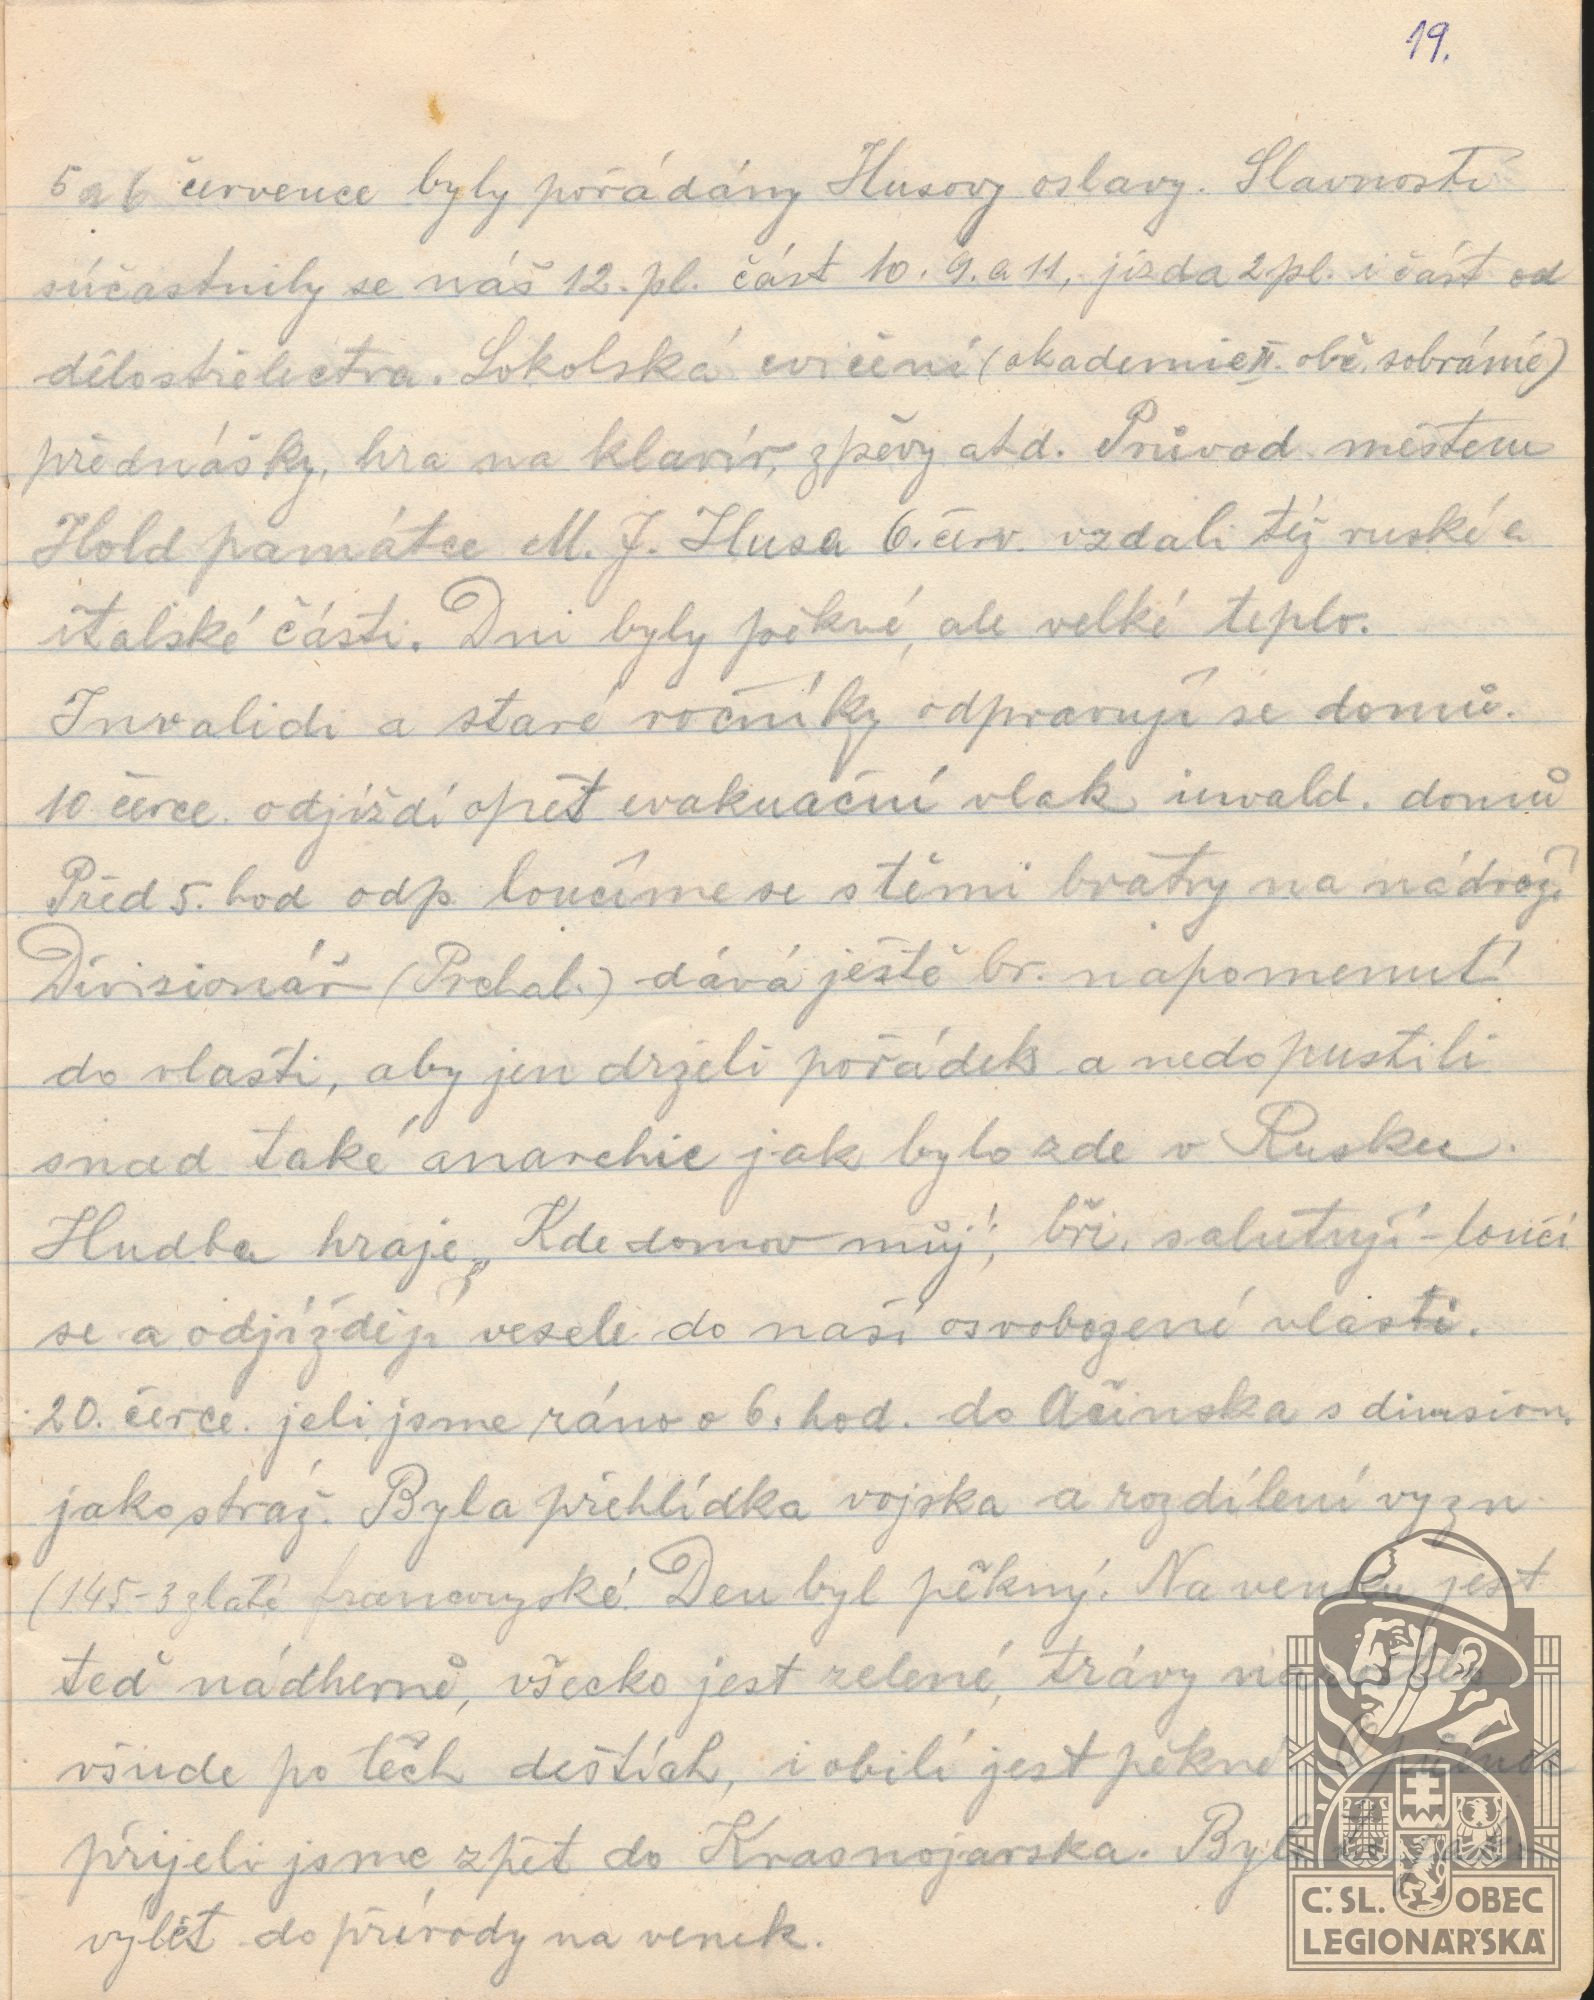 19.
5 a 6 července byly pořádány Husovy oslavy. Slavnosti
súčastnily se náš 12. pl. část 10. 9. a 11, jízda 2 pl. i část od
dělostřelectva. Sokolská cvičení (akademie II. obč. sobránié)
přednášky, hra na klavír, zpěvy atd. Průvod městem
Hold památce M. J. Husa 6. červ. vzdali též ruské a
italské části. Dni byly pěkné, ale velké teplo.
Invalidi a staré ročníky odpravují se domů.
10 čerce. odjíždí opět evakuační vlak invald. domů
Před 5. hod odp. loučíme se s těmi bratry na nádraží
Divisionář (Prchal.) dává ještě br. napomenutí
do vlasti, aby jen drželi pořádek a nedopustili
snad také anarchie jak bylo zde v Rusku.
Hudba hraje „Kde domov můj", bři. salutují - loučí
se a odjíždějí vesele do naší osvobozené vlasti.
20. čerce. jeli jsme ráno o 6. hod. do Ačinska s division.
jako stráž. Byla přehlídka vojska a rozdílení vyzn
(145 - 3 zlaté francouzské. Den byl pěkný. Na venku jest
teď nádherně, všecko jest zelené, trávy
všude po těch deštích, i obilí jest pěkné
přijeli jsme zpět do Krasnojarska. Byl
výlet do přírody na venek.
Č. SL. OBEC
LEGIONÁŘSKÁ